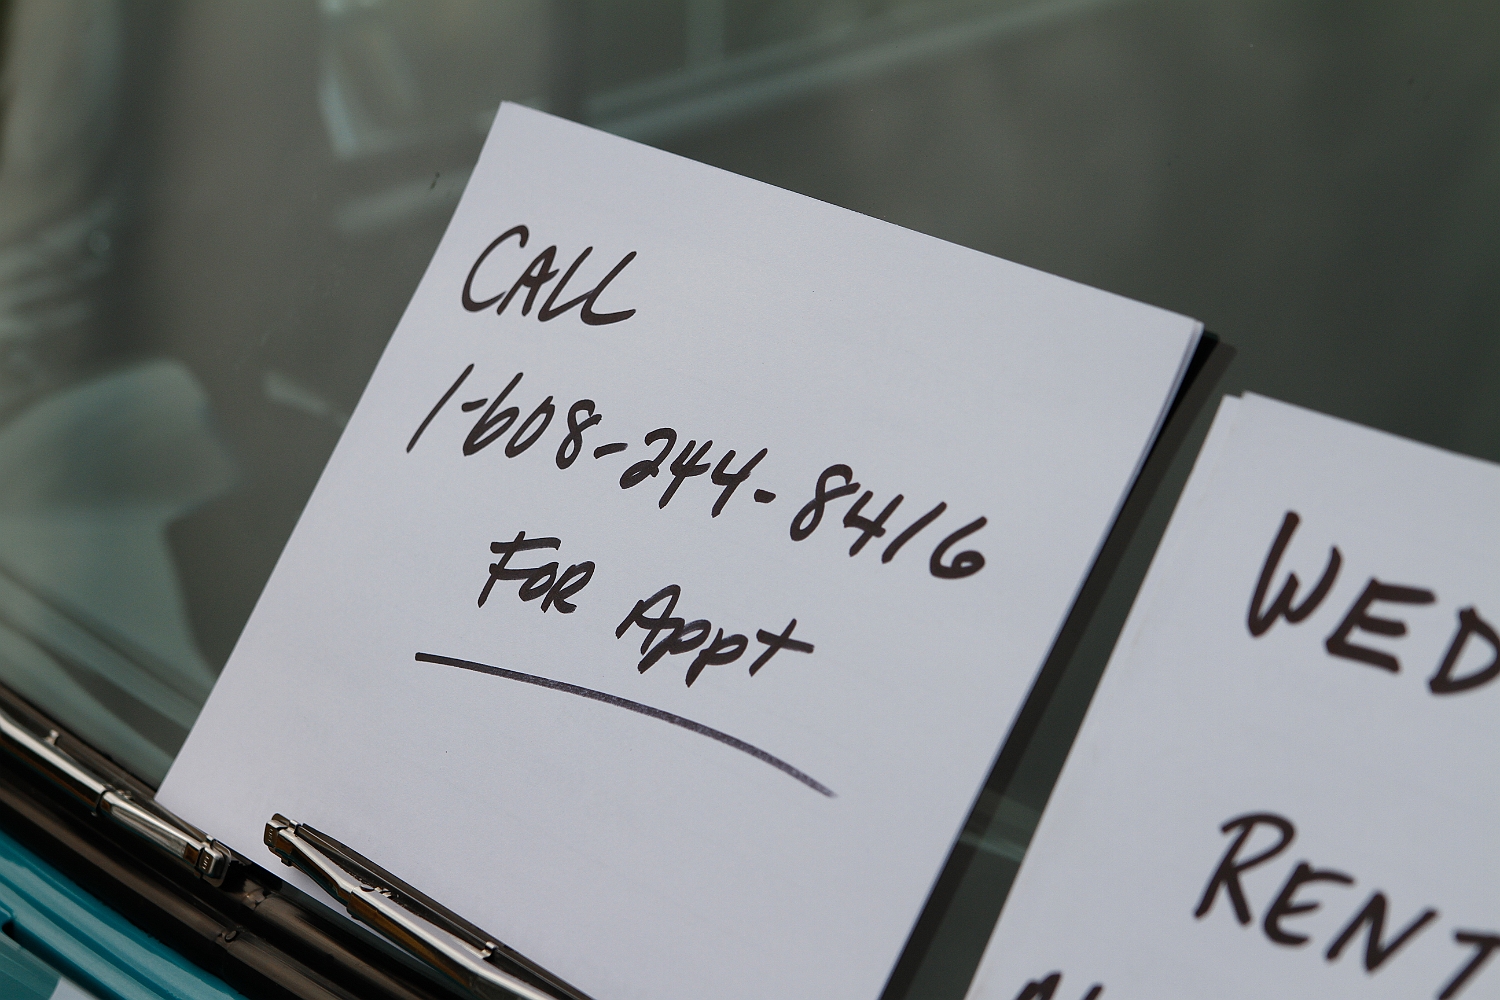 CALL
1-608-244-8416
FOR Appt
WED
RENT